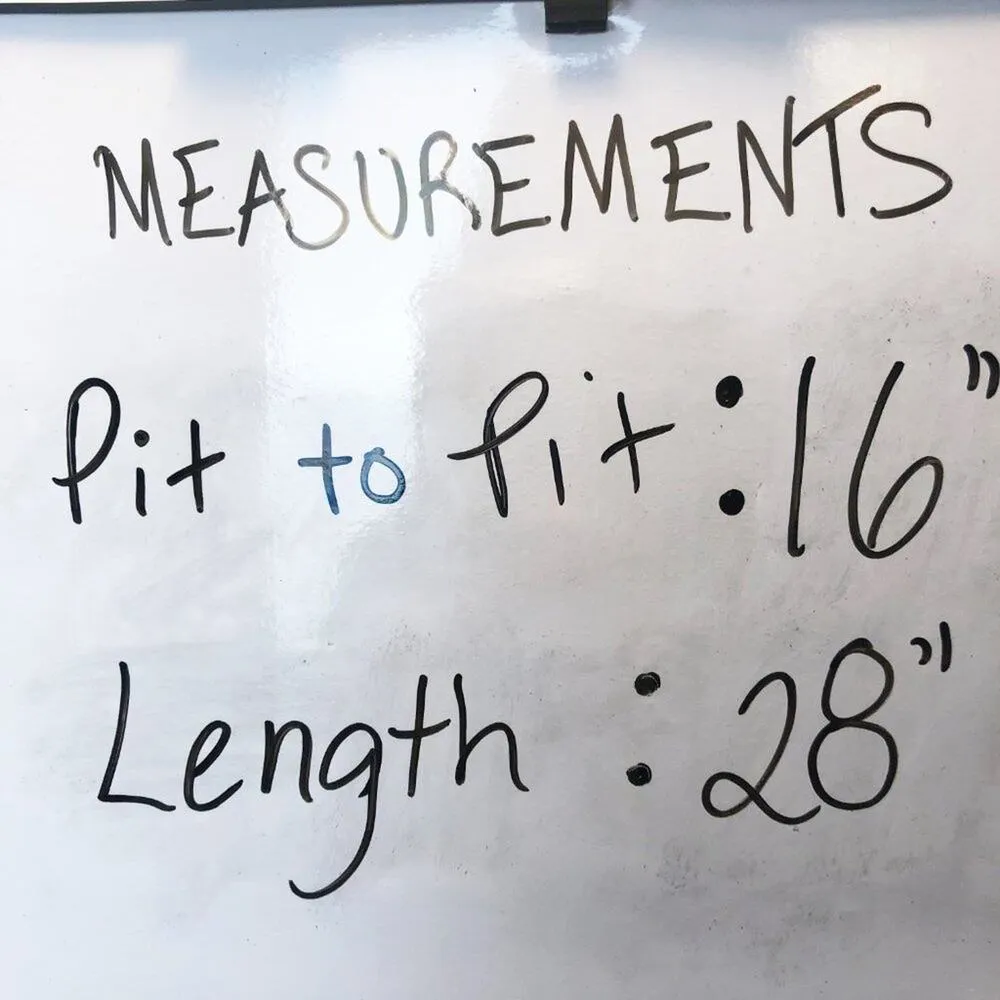 MEASUREMENTS
Pit to Pit : 16"
Length : 28"